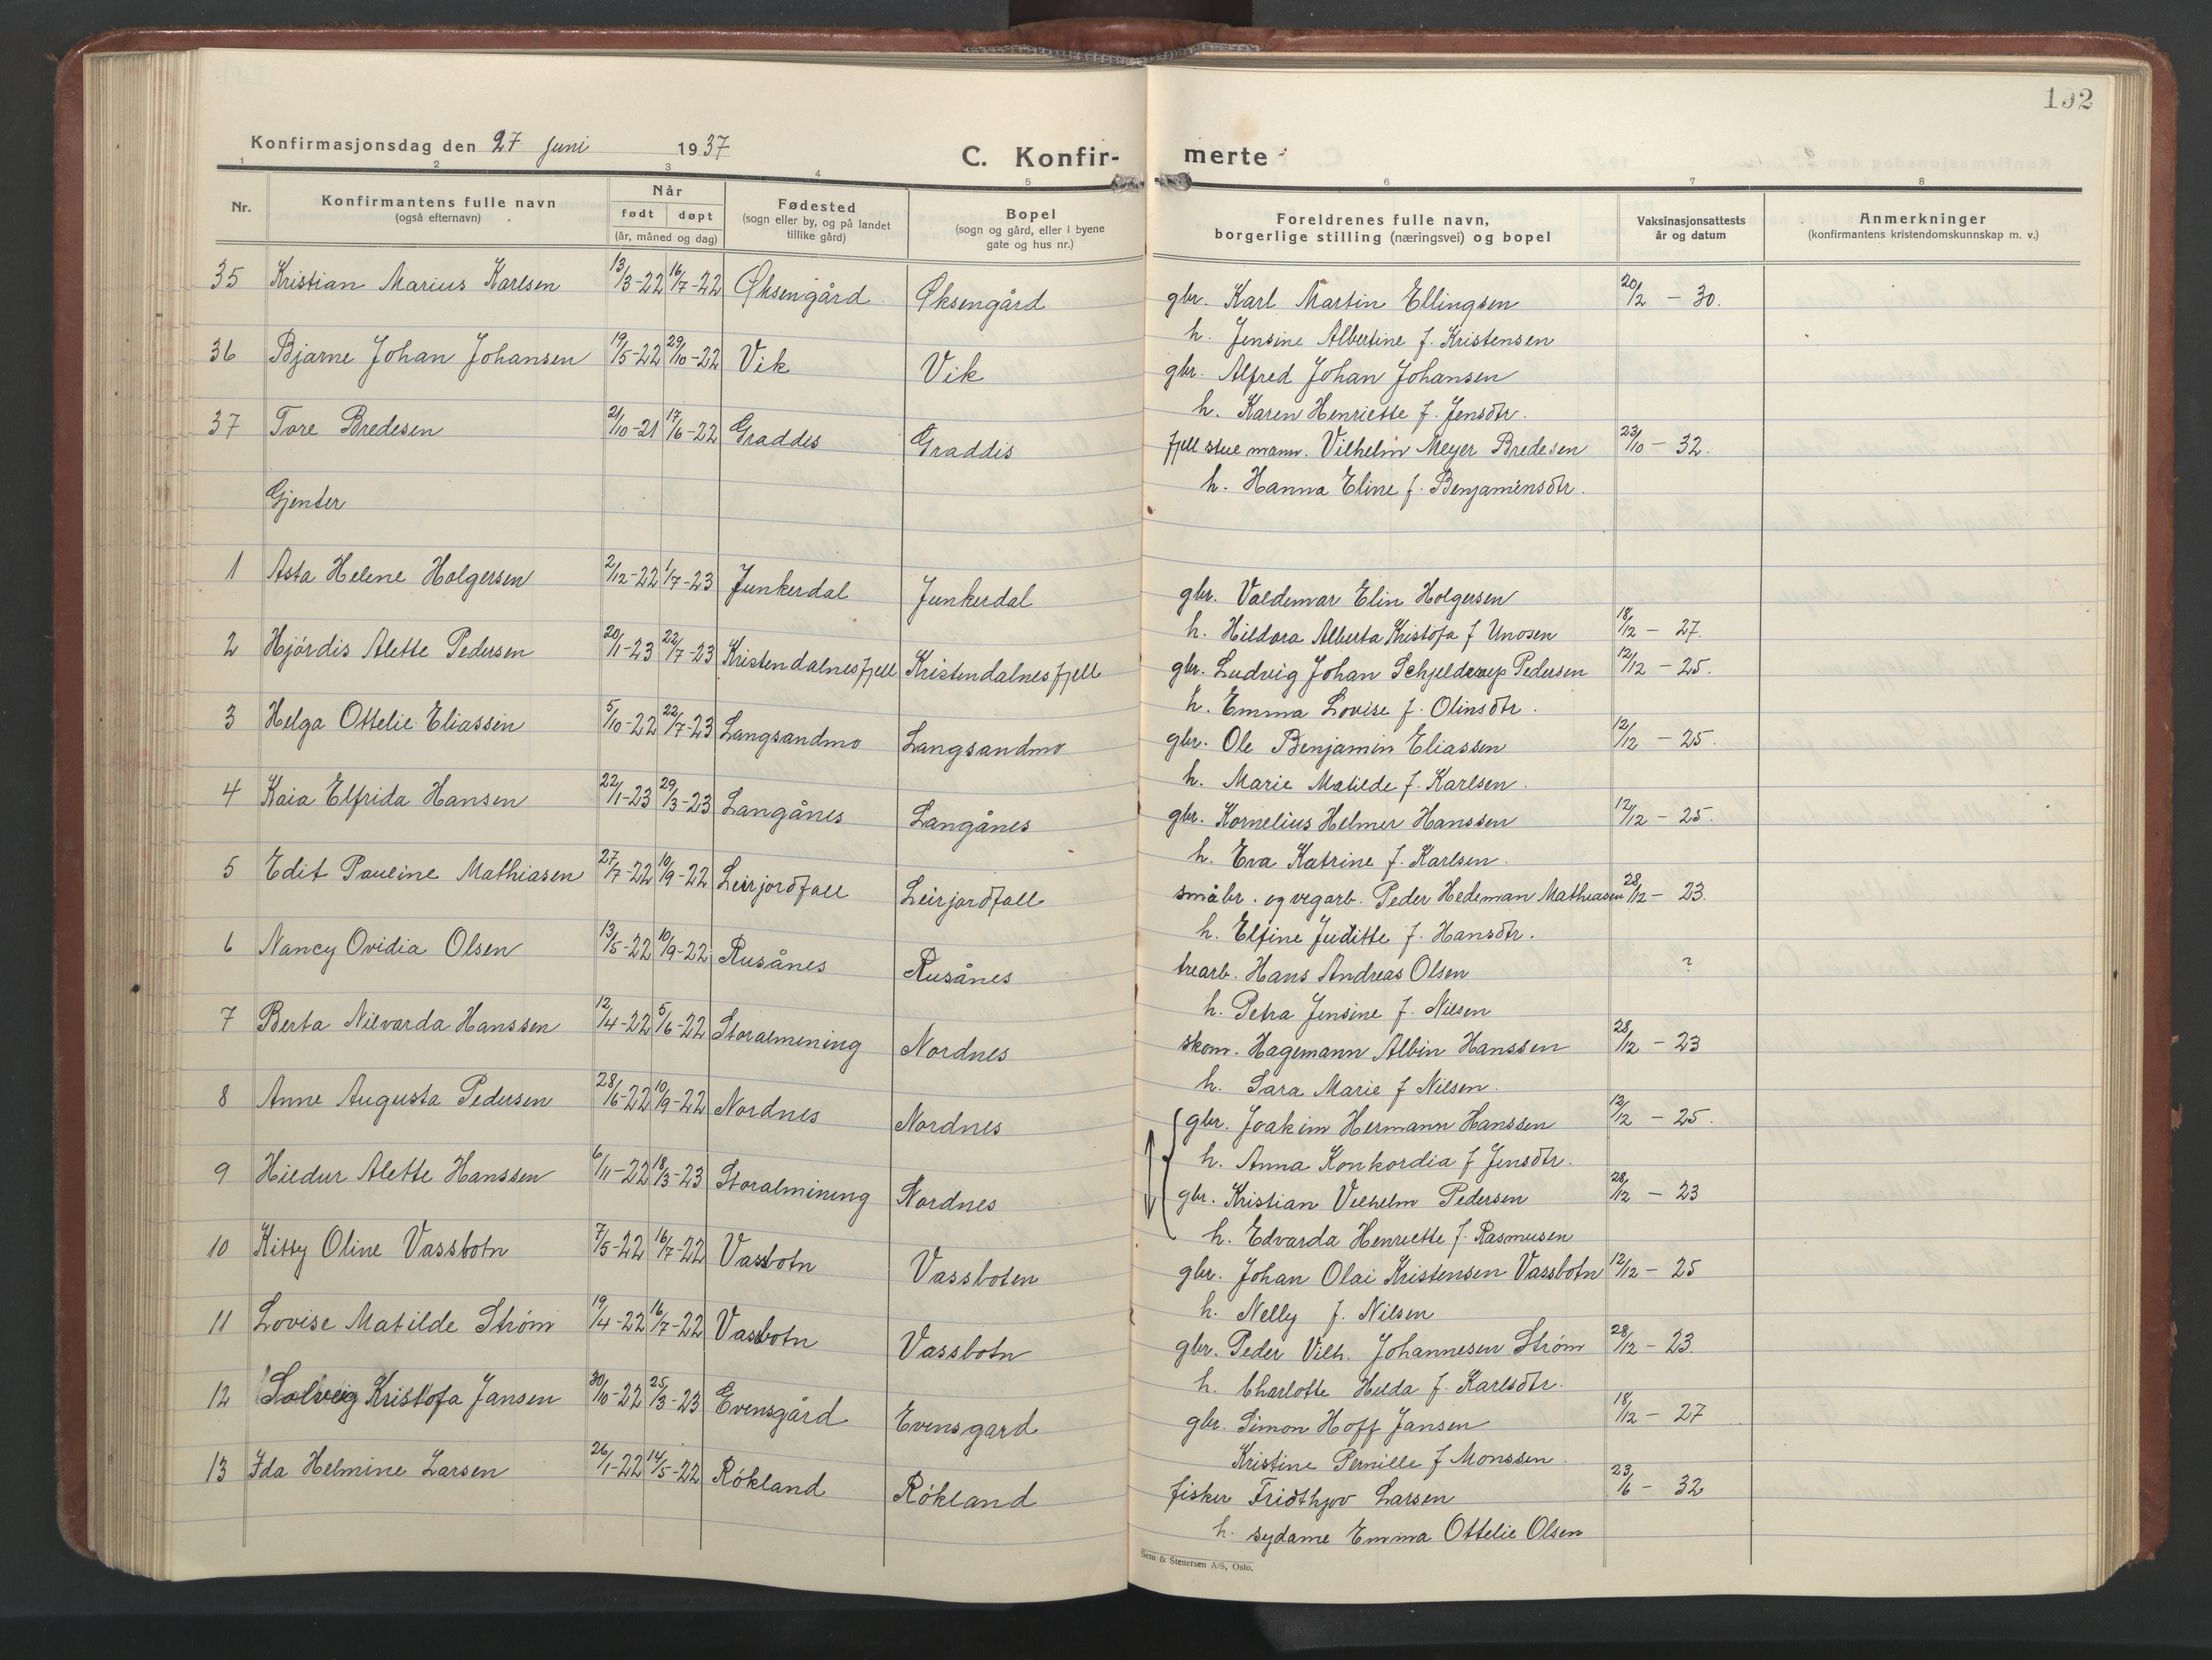 192
Konfirmasjonsdag den 27 juni 1937
C. Konfir- merte
1 2 3 4 5 6 7 8
Nr.
Konfirmantens fulle navn
(også efternavn)
Når
født døpt
(år, måned og dag)
Fødested
(sogn eller by, og på landet
tillike gård)
Bopel
(sogn og gård, eller i byene
gate og hus nr.)
Foreldrenes fulle navn,
borgerlige stilling (næringsvei) og bopel
Vaksinasjonsattests
år og datum
Anmerkninger
(konfirmantens kristendomskunnskap m. v.)
35 Kristian Marius Karlsen 13/3-22 16/7-22 Øksengård Øksengård gbr. Karl Martin Ellingsen 20/2 - 30.
h. Jensine Albertine f. Kristensen
36 Bjarne Johan Johansen 19/5-22 29/10-22 Vik Vik gbr. Alfred Johan Johansen
h. Karen Henriette f. Jensdtr.
37 Tore Bredesen 21/10-21 17/6-22 Graddis Graddis fjellstuemann. Vilhelm Meyer Bredesen 23/10 - 32.
h. Hanna Eline f. Benjaminsdtr.
Gjenter
1 Asta Helene Holgersen 2/12-22 1/7-23 Junkerdal Junkerdal gbr. Valdemar Elin Holgersen
h. Hildora Alberta Kristofa f Unosen 18/12 - 27.
2 Hjørdis Alette Pedersen 20/1-23 22/7-23 Kristendalnesfjell Kristendalnesfjell gbr. Ludvig Johan Schjelderup Pedersen 12/12 - 25.
h. Emma Lovise f. Olinsdtr.
3 Helga Ottelie Eliassen 5/10-22 22/7-23 Langsandmo Langsandmo gbr. Ole Benjamin Eliassen 12/12 - 25.
h. Marie Matilde f. Karlsen.
4 Kaia Elfrida Hansen 22/1-23 29/3-23 Langånes Langånes gbr. Kornelius Helmer Hanssen 12/12 - 25.
h. Eva Katrine f. Karlsen.
5 Edit Pauline Mathiasen 27/7-22 10/9-22 Leirjordfall Leirjordfall småbr. og vegarb. Peder Hedeman Mathiasen 28/12 - 23.
h. Elfine Juditte f. Hansdtr.
6 Nancy Ovidia Olsen 13/5-22 10/9-22 Rusånes Rusånes trearb. Hans Andreas Olsen ?
h. Petra Jensine f. Nilsen
7 Berta Nilvarda Hanssen 12/4-22 5/6-22 Storalmening Nordnes skom. Hagemann Albin Hanssen 28/12 - 23
h. Sara Marie f Nilsen.
8 Anne Augusta Pedersen 28/6-22 10/9-22 Nordnes Nordnes gbr. Joakim Hermann Hanssen 12/12 - 25.
h. Anna Konkordia f Jensdtr.
9 Hildur Alette Hanssen 6/11-22 18/3-23 Storalmening Nordnes gbr. Kristian Vilhelm Pedersen 28/12 - 23
h. Edvarda Henriette f. Rasmusen
10 Kitty Oline Vassbotn 7/5-22 16/7-22 Vassbotn Vassboten gbr. Johan Olai Kristensen Vassbotn 12/12 - 25
h. Nelly f. Nilsen
11 Lovise Matilde Strøm 19/4-22 16/7-22 Vassbotn Vassbotn gbr. Peder Vilh. Johannesen Strøm 28/12 - 23.
h. Charlotte Hilda f. Karlsdtr.
12 Solveig Kristofa Jansen 30/10-22 25/3-23 Evensgård Evensgard gbr. Simon Hoff Jansen 18/12 - 27
Kristine Pernille f Monssen.
13 Ida Helmine Larsen 26/1-22 14/5-22 Røkland Røkland fisker Fridthjov Larsen 23/6 - 32
h. sydame Emma Ottelie Olsen
Sem & Stenersen A/S, Oslo.